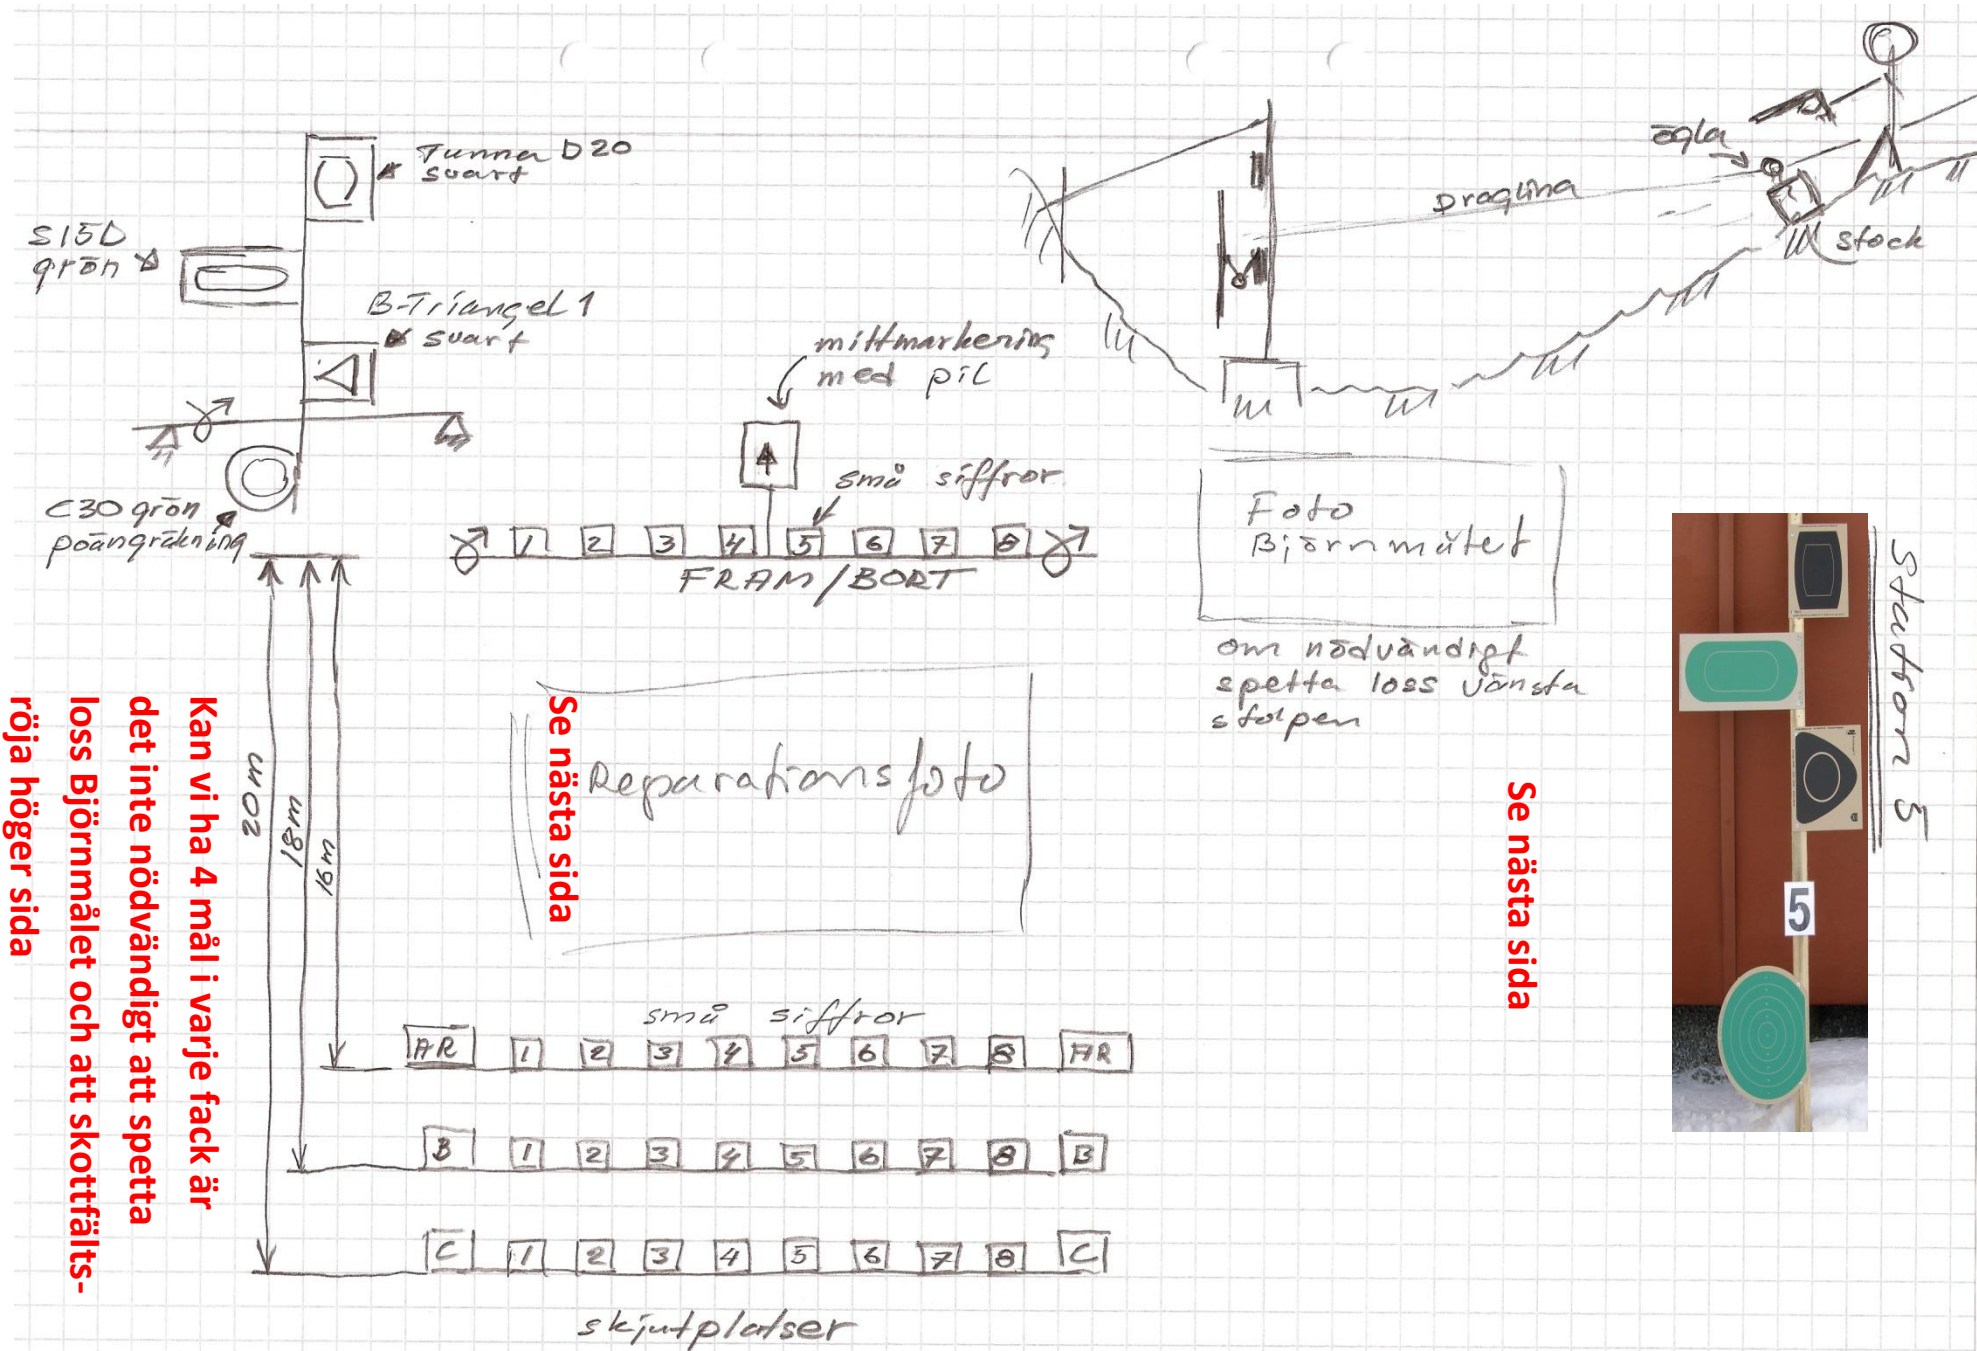 Station 5
Tunna D20
svart
S15D
grön
B-Triangel 1
svart
C30 grön
poängräkning
mittmarkering
med pil
små siffror
1 2 3 4 5 6 7 8
FRAM/BORT
ögla
Draglina
stock
Foto
Björnmålet
om nödvändigt
spetta loss vänsta
stolpen
Reparationsfoto
Se nästa sida
Se nästa sida
5
20m
18m
16m
Kan vi ha 4 mål i varje fack är
det inte nödvändigt att spetta
loss Björnmålet och att skottfälts-
röja höger sida
små siffror
AR 1 2 3 4 5 6 7 8 AR
B 1 2 3 4 5 6 7 8 B
C 1 2 3 4 5 6 7 8 C
skjutplatser